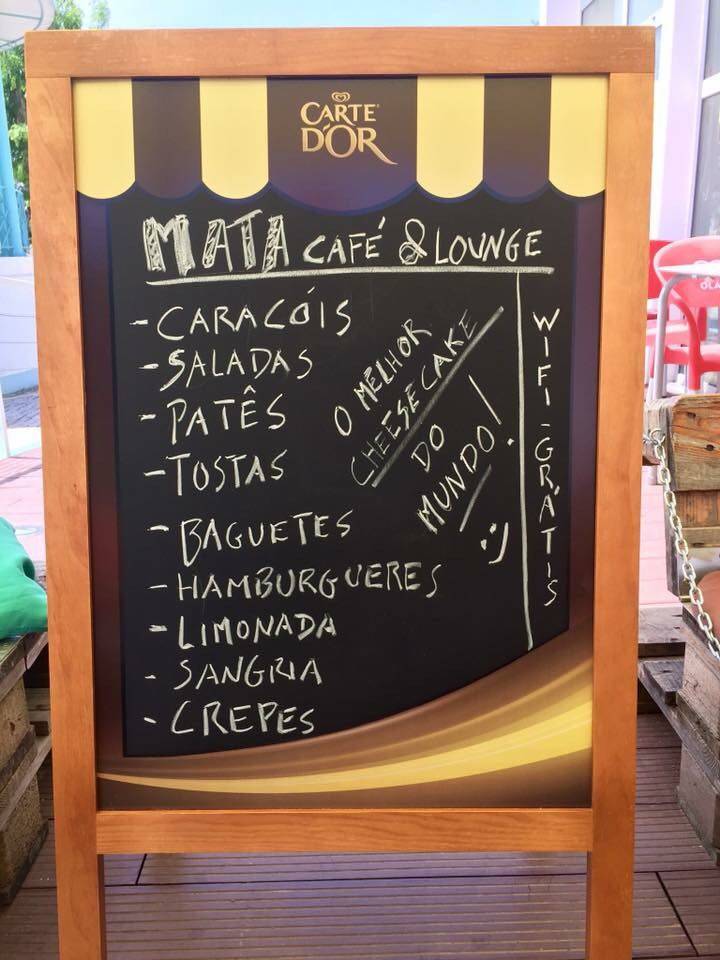 CARTE
D'OR
MATA CAFÉ & LOUNGE
- CARACÓIS
- SALADAS
- PATÊS
- TOSTAS
- BAGUETES
- HAMBURGUERES
- LIMONADA
- SANGRIA
- CREPES
O MELHOR
CHEESECAKE
DO
MUNDO!
:)
WIFI-GRÁTIS